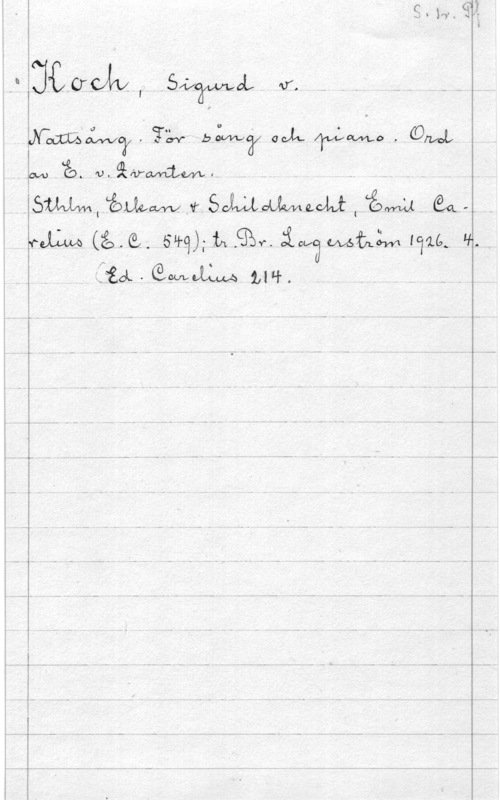 S. tr. Pf
Koch, Sigurd v.
Nattsång. För sång och piano. Ord
av E. v. Qvanten.
Sthlm, Elkan & Schildknecht, Emil Ca-
relius (E. C. 549); tr. Br. Lagerström 1926. 4.
(Ed. Carelius 214.